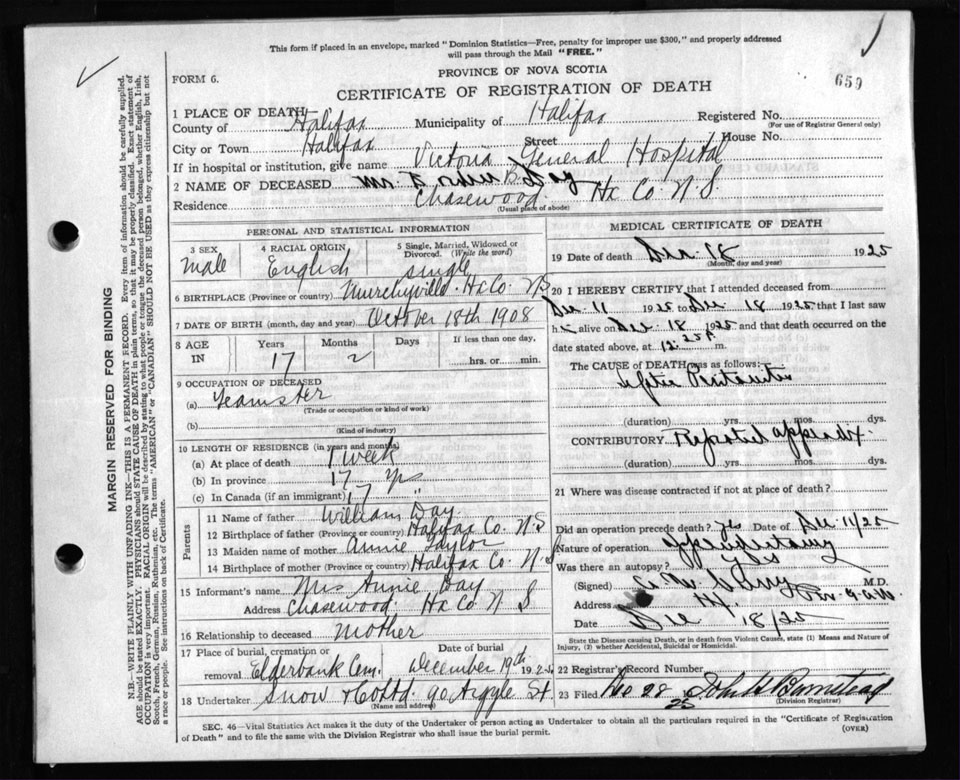 This form if placed in an envelope, marked "Dominion Statistics—Free, penalty for improper use $300," and properly addressed
will pass through the Mail "FREE."
FORM 6.
PROVINCE OF NOVA SCOTIA
659
CERTIFICATE OF REGISTRATION OF DEATH
1 PLACE OF DEATH
County of Halifax Municipality of Halifax Registered No.
(For use of Registrar General only)
City or Town Halifax Street House No.
If in hospital or institution, give name Victoria General Hospital
2 NAME OF DECEASED Mr. B. Day
Residence Chasewood Hx Co. N.S.
(Usual place of abode)
PERSONAL AND STATISTICAL INFORMATION
3 SEX Male
4 RACIAL ORIGIN English
5 Single, Married, Widowed or Divorced. (Write the word) single
6 BIRTHPLACE (Province or country) Murchyville Hx Co. NS
7 DATE OF BIRTH (month, day and year) October 18th 1908
8 AGE IN Years 17 Months 2 Days If less than one day, hrs. or min.
9 OCCUPATION OF DECEASED
(a) Teamster
(Trade or occupation or kind of work)
(b)
(Kind of industry)
10 LENGTH OF RESIDENCE (in years and months)
(a) At place of death 1 week
(b) In province 17 yrs
(c) In Canada (if an immigrant) 17 "
Parents
11 Name of father William Day
12 Birthplace of father (Province or country) Halifax Co. N.S
13 Maiden name of mother Annie Taylor
14 Birthplace of mother (Province or country) Halifax Co. N.S
15 Informant's name Mrs Annie Day
Address Chasewood. Hx Co N S
16 Relationship to deceased Mother
17 Place of burial, cremation or removal Elderbank Cem. Date of burial December 19th 192
18 Undertaker Snow & Co Ltd 90 Argyle St.
(Name and address)
MEDICAL CERTIFICATE OF DEATH
19 Date of death Dec 18 1925
(Month, day and year)
20 I HEREBY CERTIFY that I attended deceased from
Dec 11 1925 to Dec 18 1925 that I last saw
him alive on Dec 18 1925 and that death occurred on the
date stated above, at 12.25 P. m.
The CAUSE OF DEATH was as follows:
Septic Peritonitis
(duration) yrs. mos. dys.
CONTRIBUTORY appendix.
(duration) yrs. mos. dys.
21 Where was disease contracted if not at place of death?
Did an operation precede death? yes Date of Dec 11/25
Nature of operation Appendectomy
Was there an autopsy? yes
(Signed) M.D.
Address Hx.
Date Dec 18/25
State the Disease causing Death, or in death from Violent Causes, state (1) Means and Nature of
Injury, (2) whether Accidental, Suicidal or Homicidal.
22 Registrar's Record Number
23 Filed Dec 28 25 John H Barnstead
(Division Registrar)
SEC. 46—Vital Statistics Act makes it the duty of the Undertaker or person acting as Undertaker to obtain all the particulars required in the "Certificate of Registration
of Death" and to file the same with the Division Registrar who shall issue the burial permit.
(OVER)
MARGIN RESERVED FOR BINDING
N.B.—WRITE PLAINLY WITH UNFADING INK—THIS IS A PERMANENT RECORD. Every item of information should be carefully supplied.
AGE should be stated EXACTLY. PHYSICIANS should STATE CAUSE OF DEATH in plain terms, so that it may be properly classified. Exact statement of
OCCUPATION is very important. RACIAL ORIGIN will be described by stating to what people or tongue the deceased person belonged, whether English, Irish,
Scotch, French, German, Russian, Ruthenian, etc. The terms "AMERICAN" or "CANADIAN" SHOULD NOT BE USED as they express citizenship but not
a race or people. See instructions on back of Certificate.